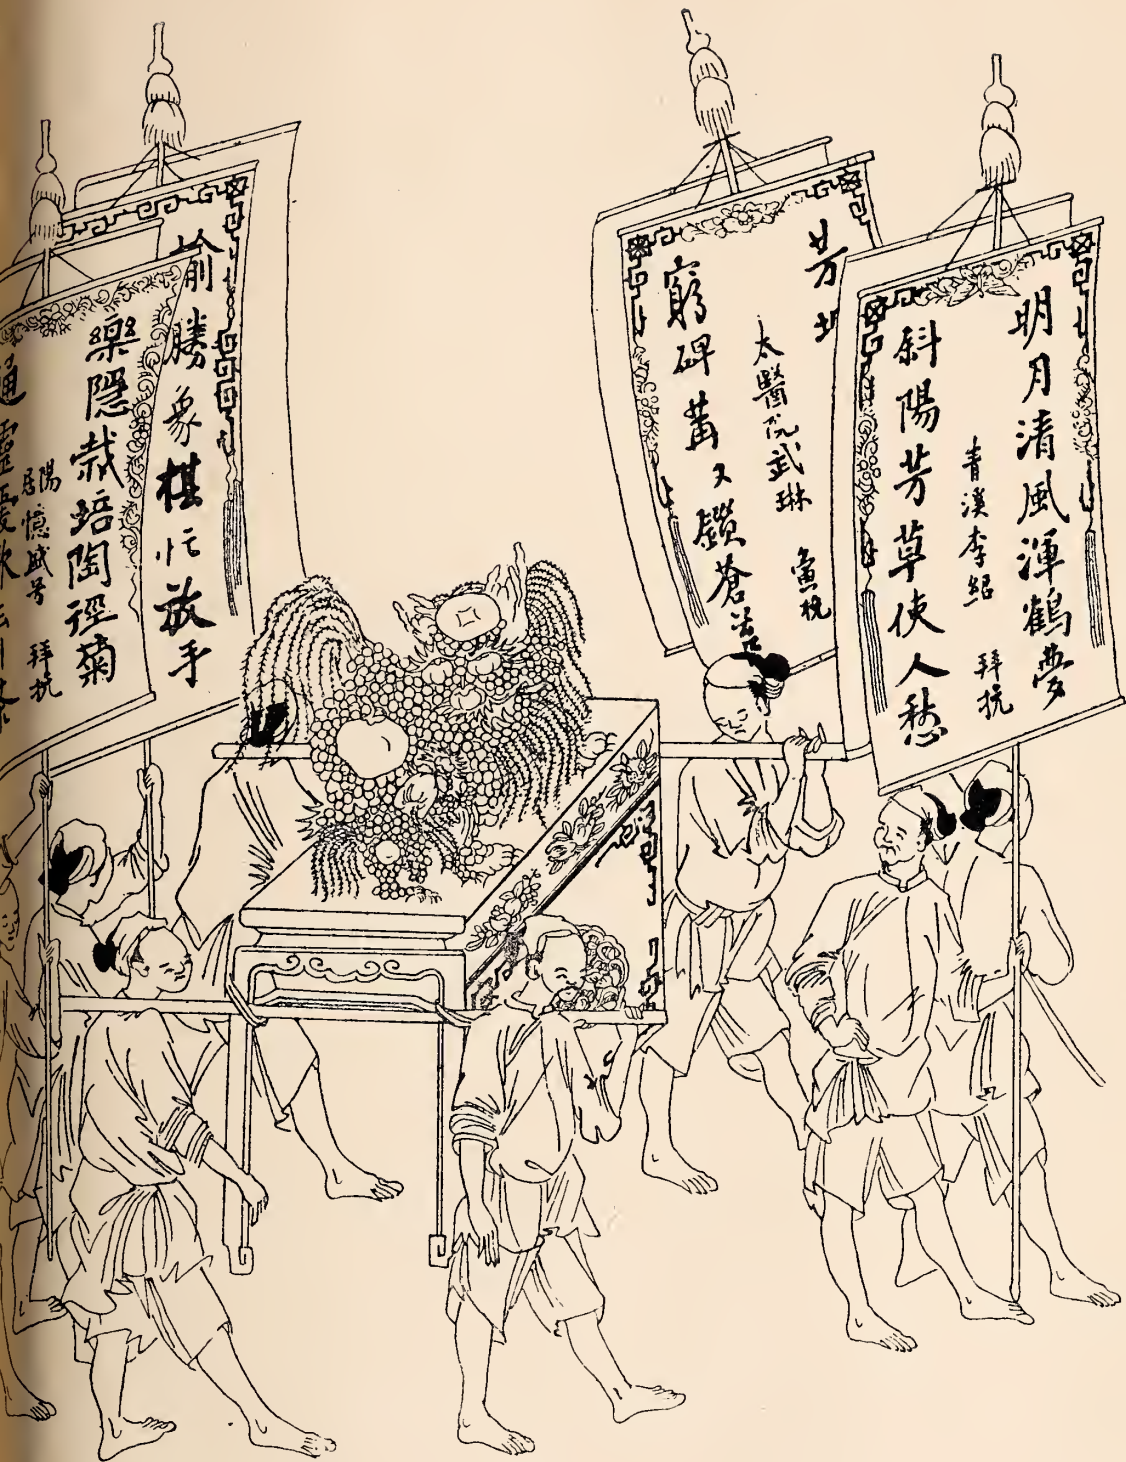 明月清風渾鶴夢
青溪李紹 拜挽
斜陽芳草使人愁
芳
太醫院武琳
寅挽
窮碑
又鑽蒼
喻勝象棋忙放手
樂隱栽培陶徑菊
陽
居憶盛号 拜挽
通靈